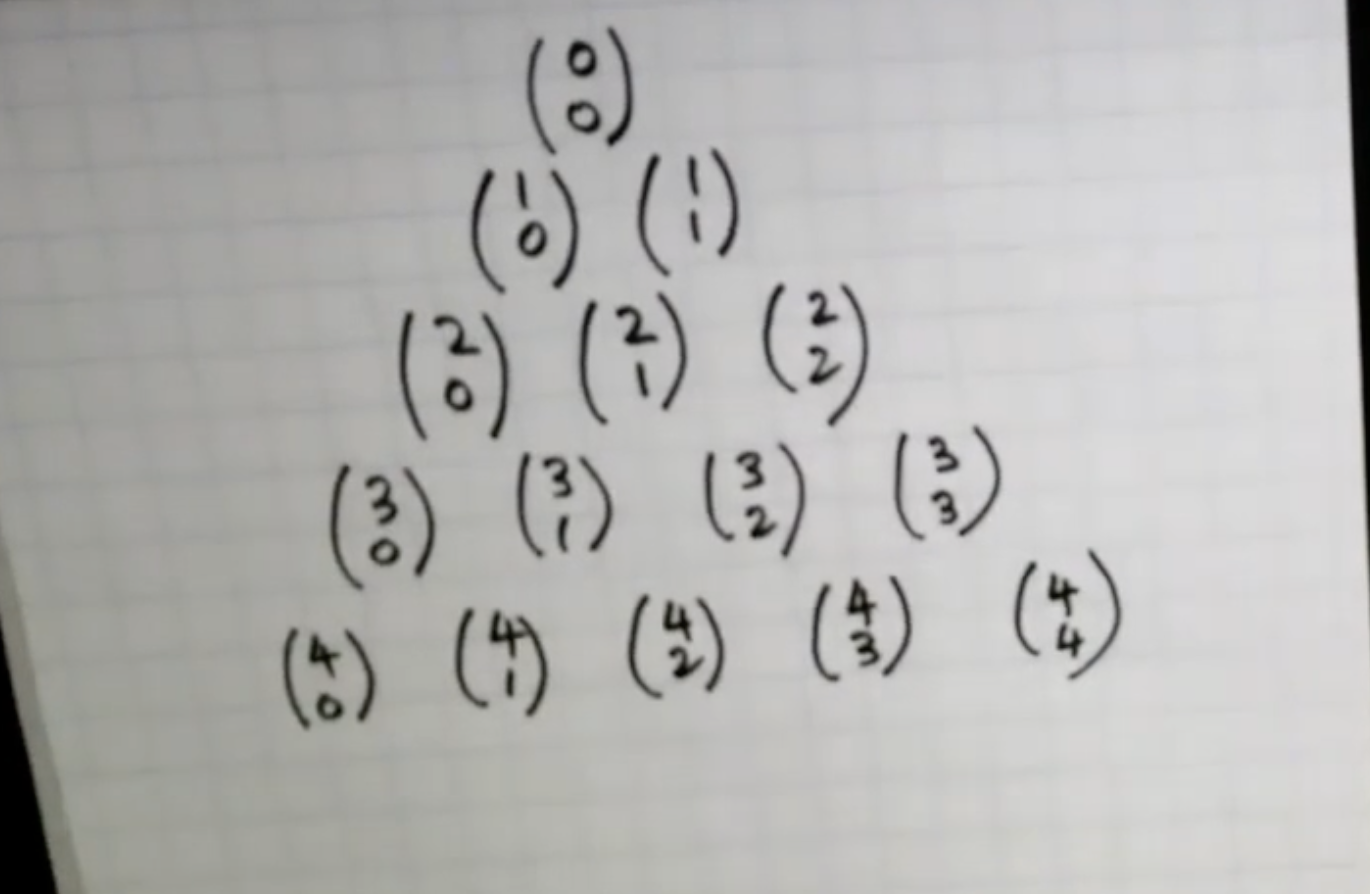 (0 0)
(1 0) (1 1)
(2 0) (2 1) (2 2)
(3 0) (3 1) (3 2) (3 3)
(4 0) (4 1) (4 2) (4 3) (4 4)